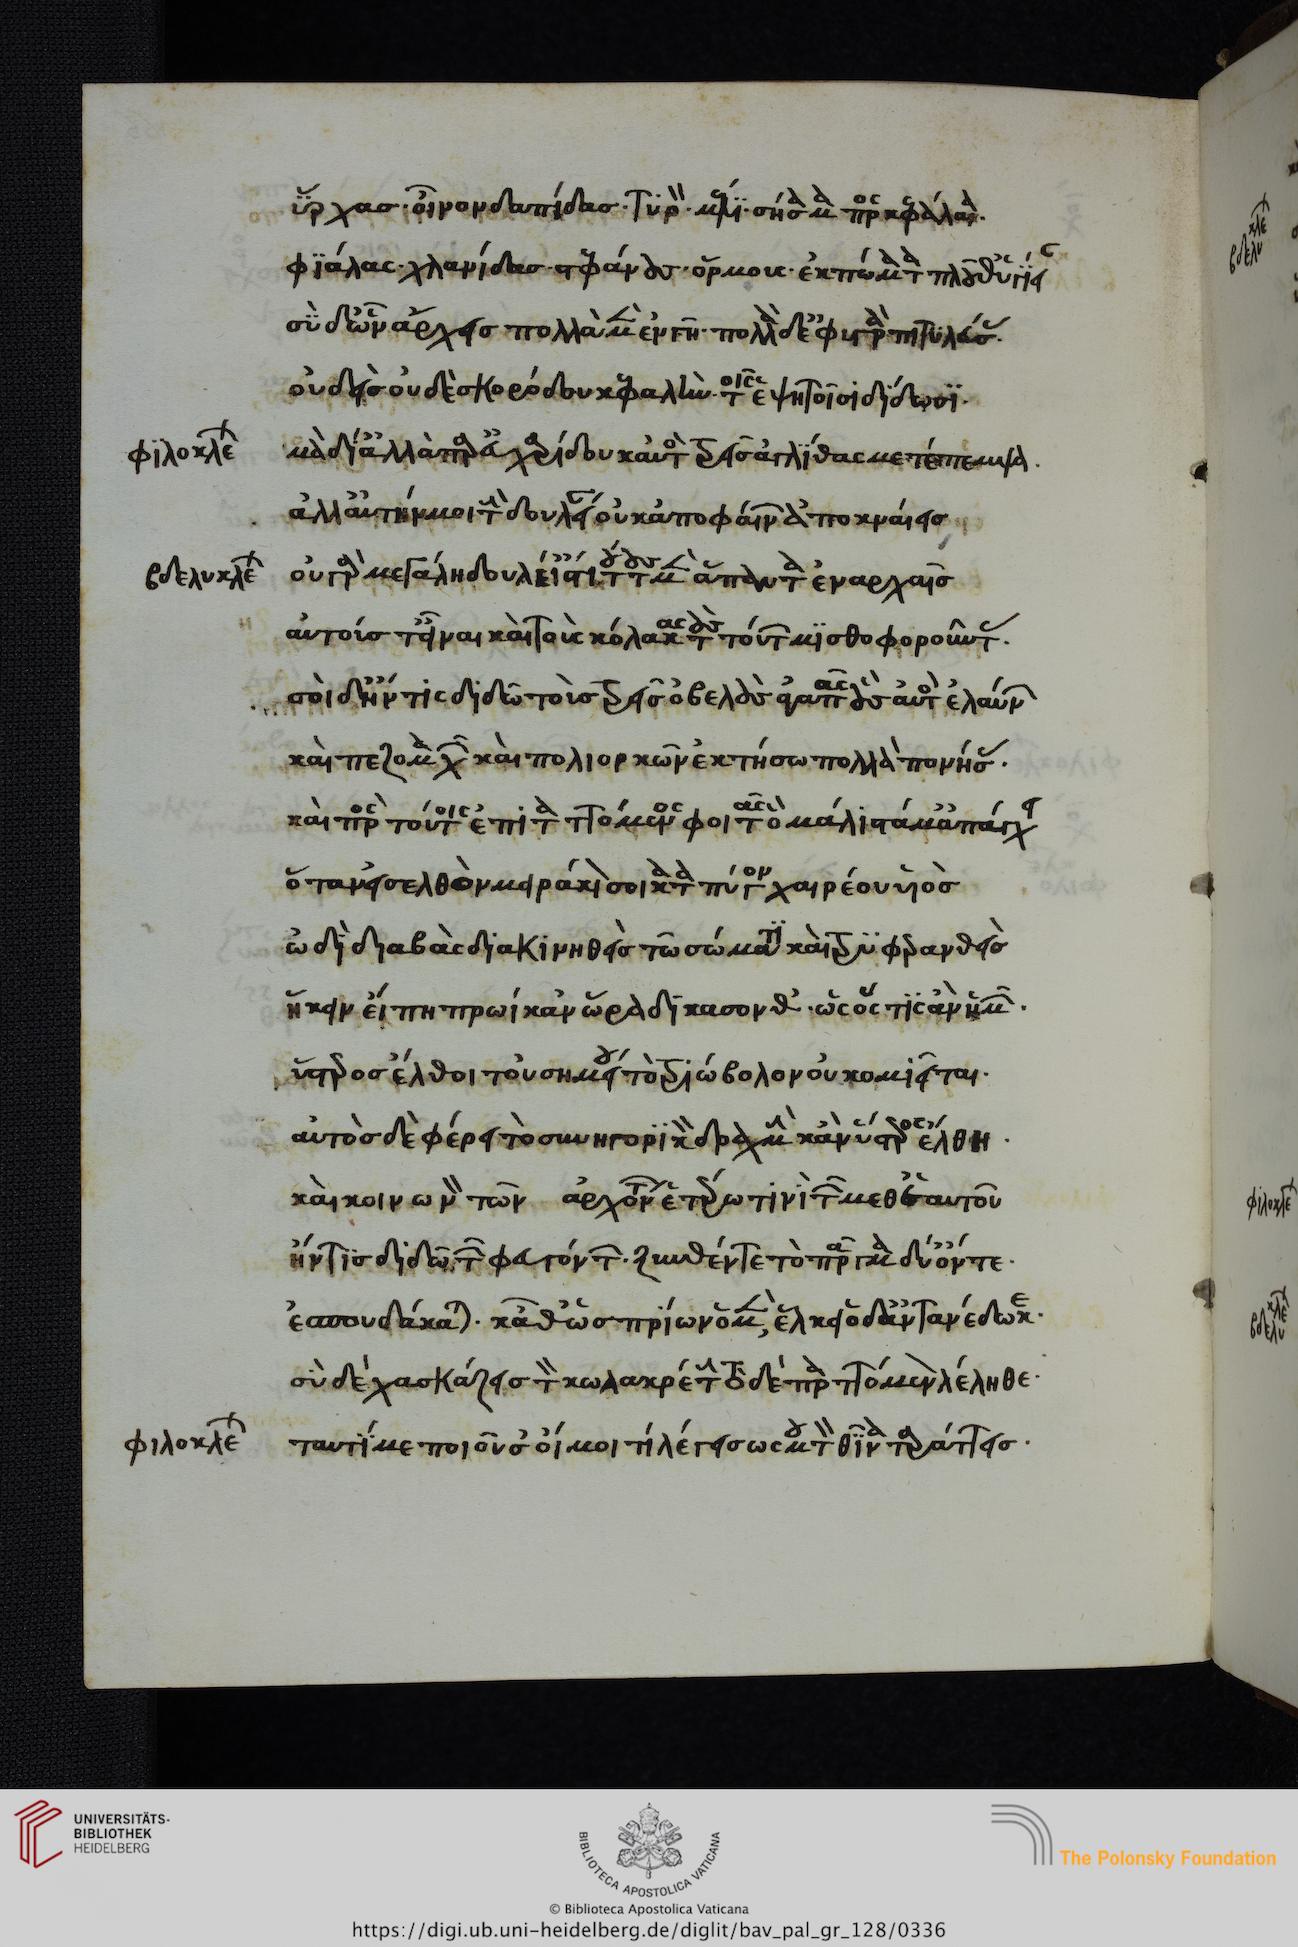 ὕρχας· οἶνον δαπίδας· τυρὸν· μέλι· σήσαμα προσκεφάλαια.
φιάλας· χλανίδας· στεφάνους· ὅρμους· ἐκπώματα πλουθυγιείας
σὺ δ' ὧν ἄρχεις πολλὰ μὲν ἐν γῆ· πολλὰ δ' ἐφ' ὑγρᾶ πιτυλεύσας.
οὐδεὶς οὐδὲ σκορόδου κεφαλὴν· τοῖς ἑψητοῖσι δίδωσι.
φιλοκλέων μὰ δί' ἀλλὰ παρ' εὐχαρίδου καὐτὸς τρεῖς ἀγλίθας μετέπεμψα.
ἀλλ' αὐτήν μοι τὴν δουλείαν οὐκ ἀποφαίνων ἀποκναίεις
βδελυκλέων οὐ γὰρ μεγάλη δουλεία ἐστὶ τούτους μὲν ἅπαντας ἐν ἀρχαῖς
αὐτούς τ' εἶναι καὶ τοὺς κόλακας τοὺς τούτων μισθοφοροῦντας.
σοὶ δ' ἤν τις διδῶ τοὺς τρεῖς ὀβολοὺς ἀγαπᾶς οὓς αὐτὸς ἐλαύνων
καὶ πεζομαχῶν καὶ πολιορκῶν ἐκτήσω πολλὰ πονήσας.
καὶ πρὸς τούτοις ἐπιταττόμενος φοιτᾶς ὃ μάλιστά μ' ἀπάγχει
ὅταν εἰσελθὸν μειράκιόν σοι κατάπυγον χαιρέου υἱὸς
ὡδὶ διαβὰς διακινηθεὶς τῶ σώματι καὶ τρυφερανθεὶς
ἥκειν εἴπη πρωὶ κἀν ὥρα δικάσονθ'· ὡς ὅστις ἂν ὑμῶν.
ὕστερος ἔλθοι τοῦ σημείου τὸ τριώβολον οὐ κομιεῖται.
αὐτὸς δὲ φέρει τὸ συνηγορικὸν δραχμὴν κἂν ὕστερος ἔλθη.
καὶ κοινωνῶν τῶν ἀρχόντων ἑτέρω τινὶ τῶν μεθ' ἑαυτοῦ
ἤν τίς τι διδῶ τῶν φευγόντων. ξυνθέντε τὸ πρᾶγμα δύ' ὄντε.
ἐσπουδάκατον. κᾆθ' ὡς πρίονθ' ὁ μὲν, ἕλκει ὁ δ' ἀντανέδωκε.
σὺ δὲ χασκάζεις τὸν κωλακρέτην τὸ δὲ πραττόμενον λέληθε.
φιλοκλέων ταυτί με ποιοῦσ' οἴμοι τί λέγεις ὥς μου τὸν θῖνα ταράττεις.
βδελυκλέ
φιλοκλέ
βδελυκλέ
UNIVERSITÄTS-
BIBLIOTHEK
HEIDELBERG
BIBLIOTECA APOSTOLICA VATICANA
The Polonsky Foundation
© Biblioteca Apostolica Vaticana
https://digi.ub.uni-heidelberg.de/diglit/bav_pal_gr_128/0336